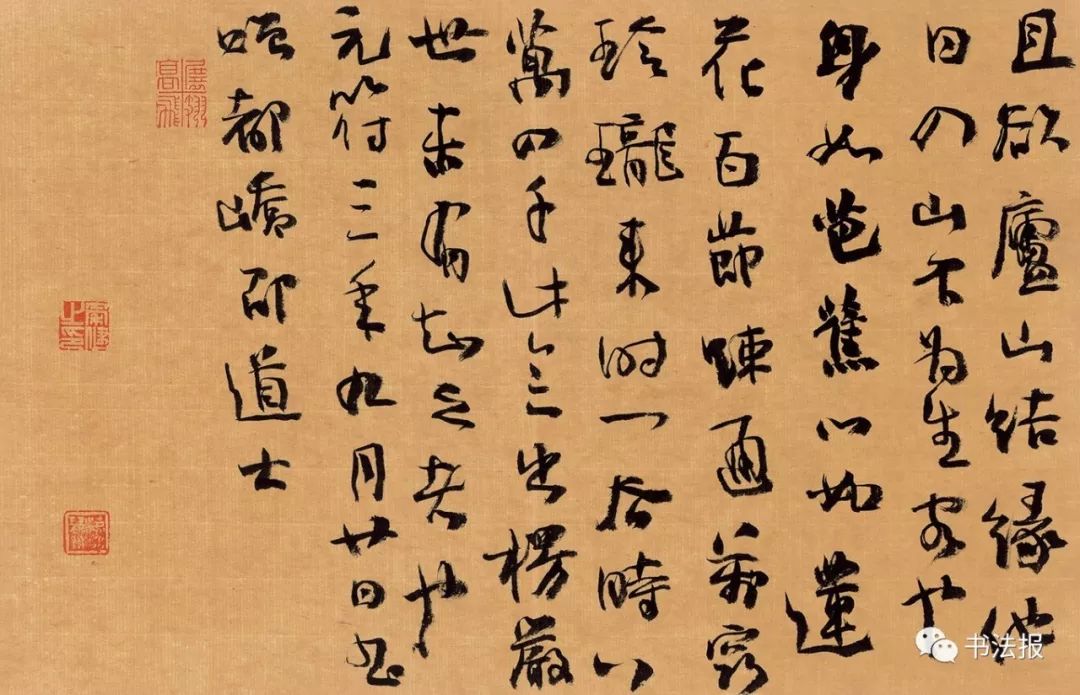 且欲廬山結緣他
日入山不為生客也
身如芭蕉心如蓮
花百節疎通萬竅
玲瓏來時一去時八
萬四千此出楞嚴
世未有知之者也
元符三年九月廿日書
贈都嶠邵道士
书法报